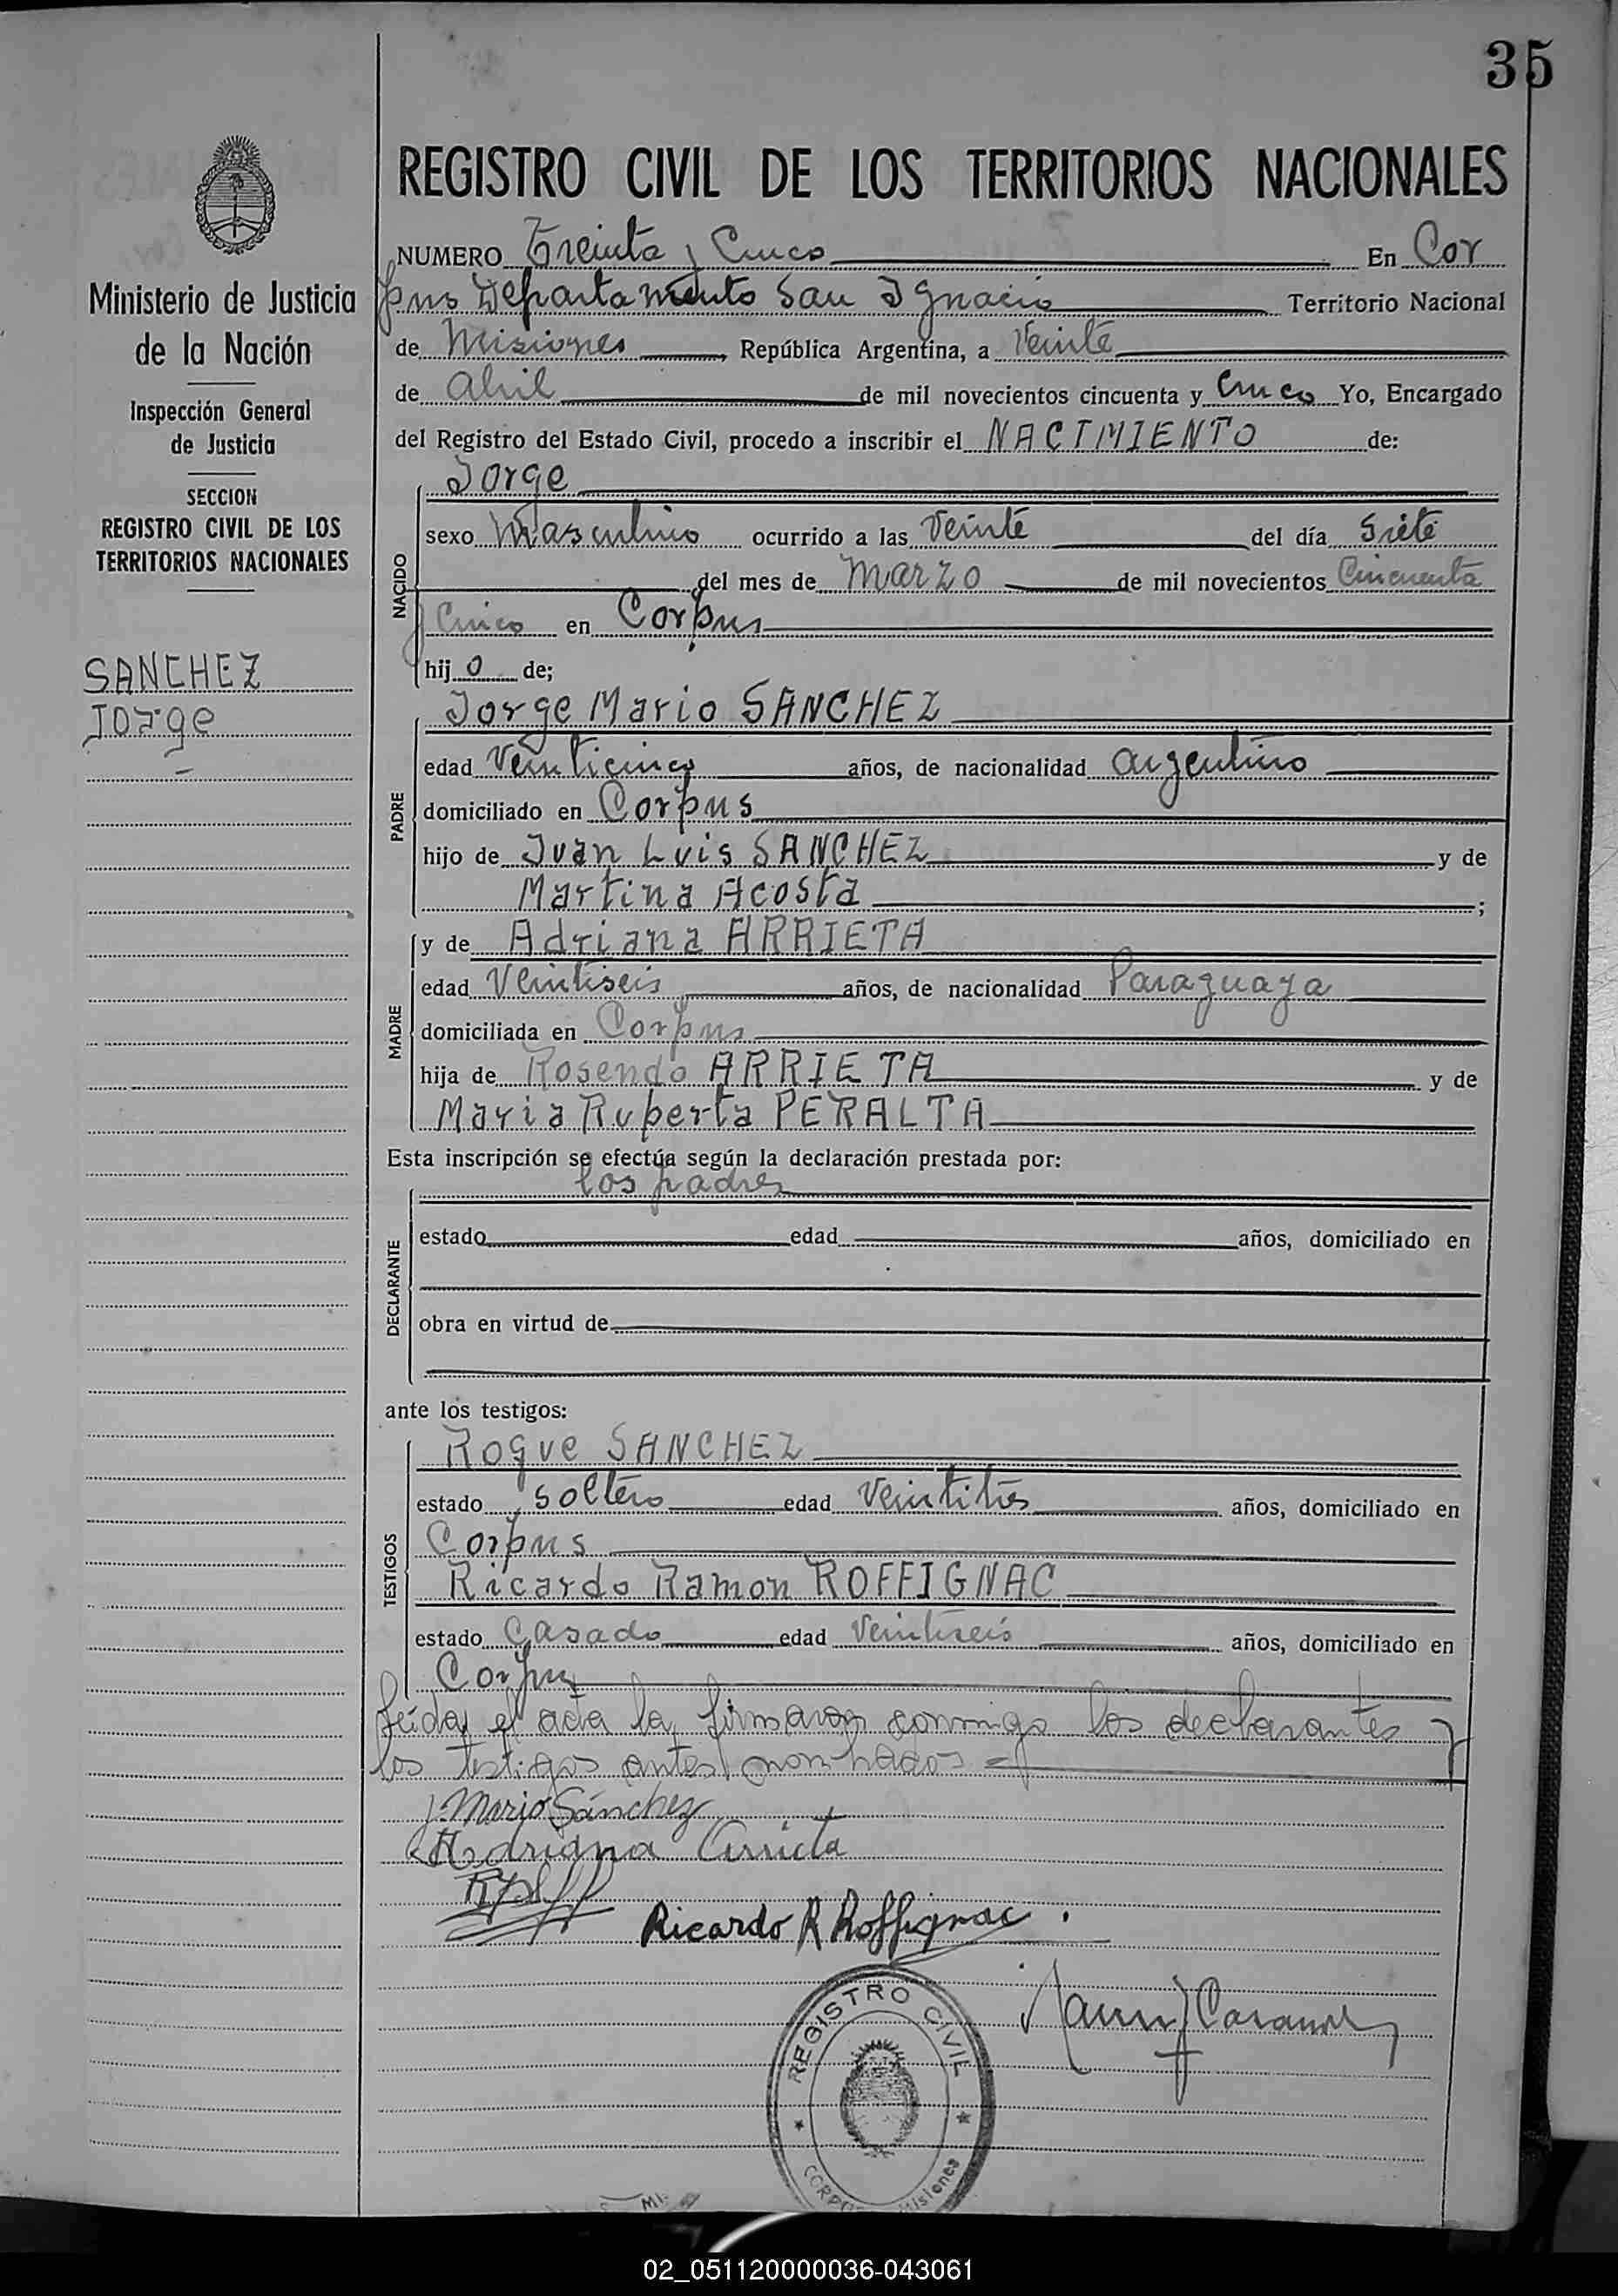 35
REGISTRO CIVIL DE LOS TERRITORIOS NACIONALES
NUMERO Treinta y Cinco En Cor
pus Departamento San Ignacio Territorio Nacional
de Misiones, República Argentina, a Veinte
de abril de mil novecientos cincuenta y Cinco Yo, Encargado
del Registro del Estado Civil, procedo a inscribir el NACIMIENTO de:
Jorge
sexo Masculino ocurrido a las Veinte del día Siete
del mes de Marzo de mil novecientos Cincuenta
y Cinco en Corpus
hijo de;
NACIDO
Jorge Mario SANCHEZ
edad Veinticinco años, de nacionalidad argentino
domiciliado en Corpus
hijo de Juan Luis SANCHEZ y de
Martina Acosta ;
PADRE
y de Adriana ARRIETA
edad Veintiseis años, de nacionalidad Paraguaya
domiciliada en Corpus
hija de Rosendo ARRIETA y de
Maria Ruperta PERALTA
MADRE
Esta inscripción se efectúa según la declaración prestada por:
los padres
estado edad años, domiciliado en
obra en virtud de
DECLARANTE
ante los testigos:
Roque SANCHEZ
estado soltero edad Veintitres años, domiciliado en
Corpus
Ricardo Ramon ROFFIGNAC
estado Casado edad Veintiseis años, domiciliado en
Corpus
TESTIGOS
Leida el acta la firmaron conmigo los declarantes y
los testigos antes nombrados =
J. Mario Sánchez
Adriana Arrieta
Ricardo R Roffignac.
REGISTRO CIVIL
CORPUS Misiones
Ministerio de Justicia
de la Nación
Inspección General
de Justicia
SECCION
REGISTRO CIVIL DE LOS
TERRITORIOS NACIONALES
SANCHEZ
Jorge
02_051120000036-043061